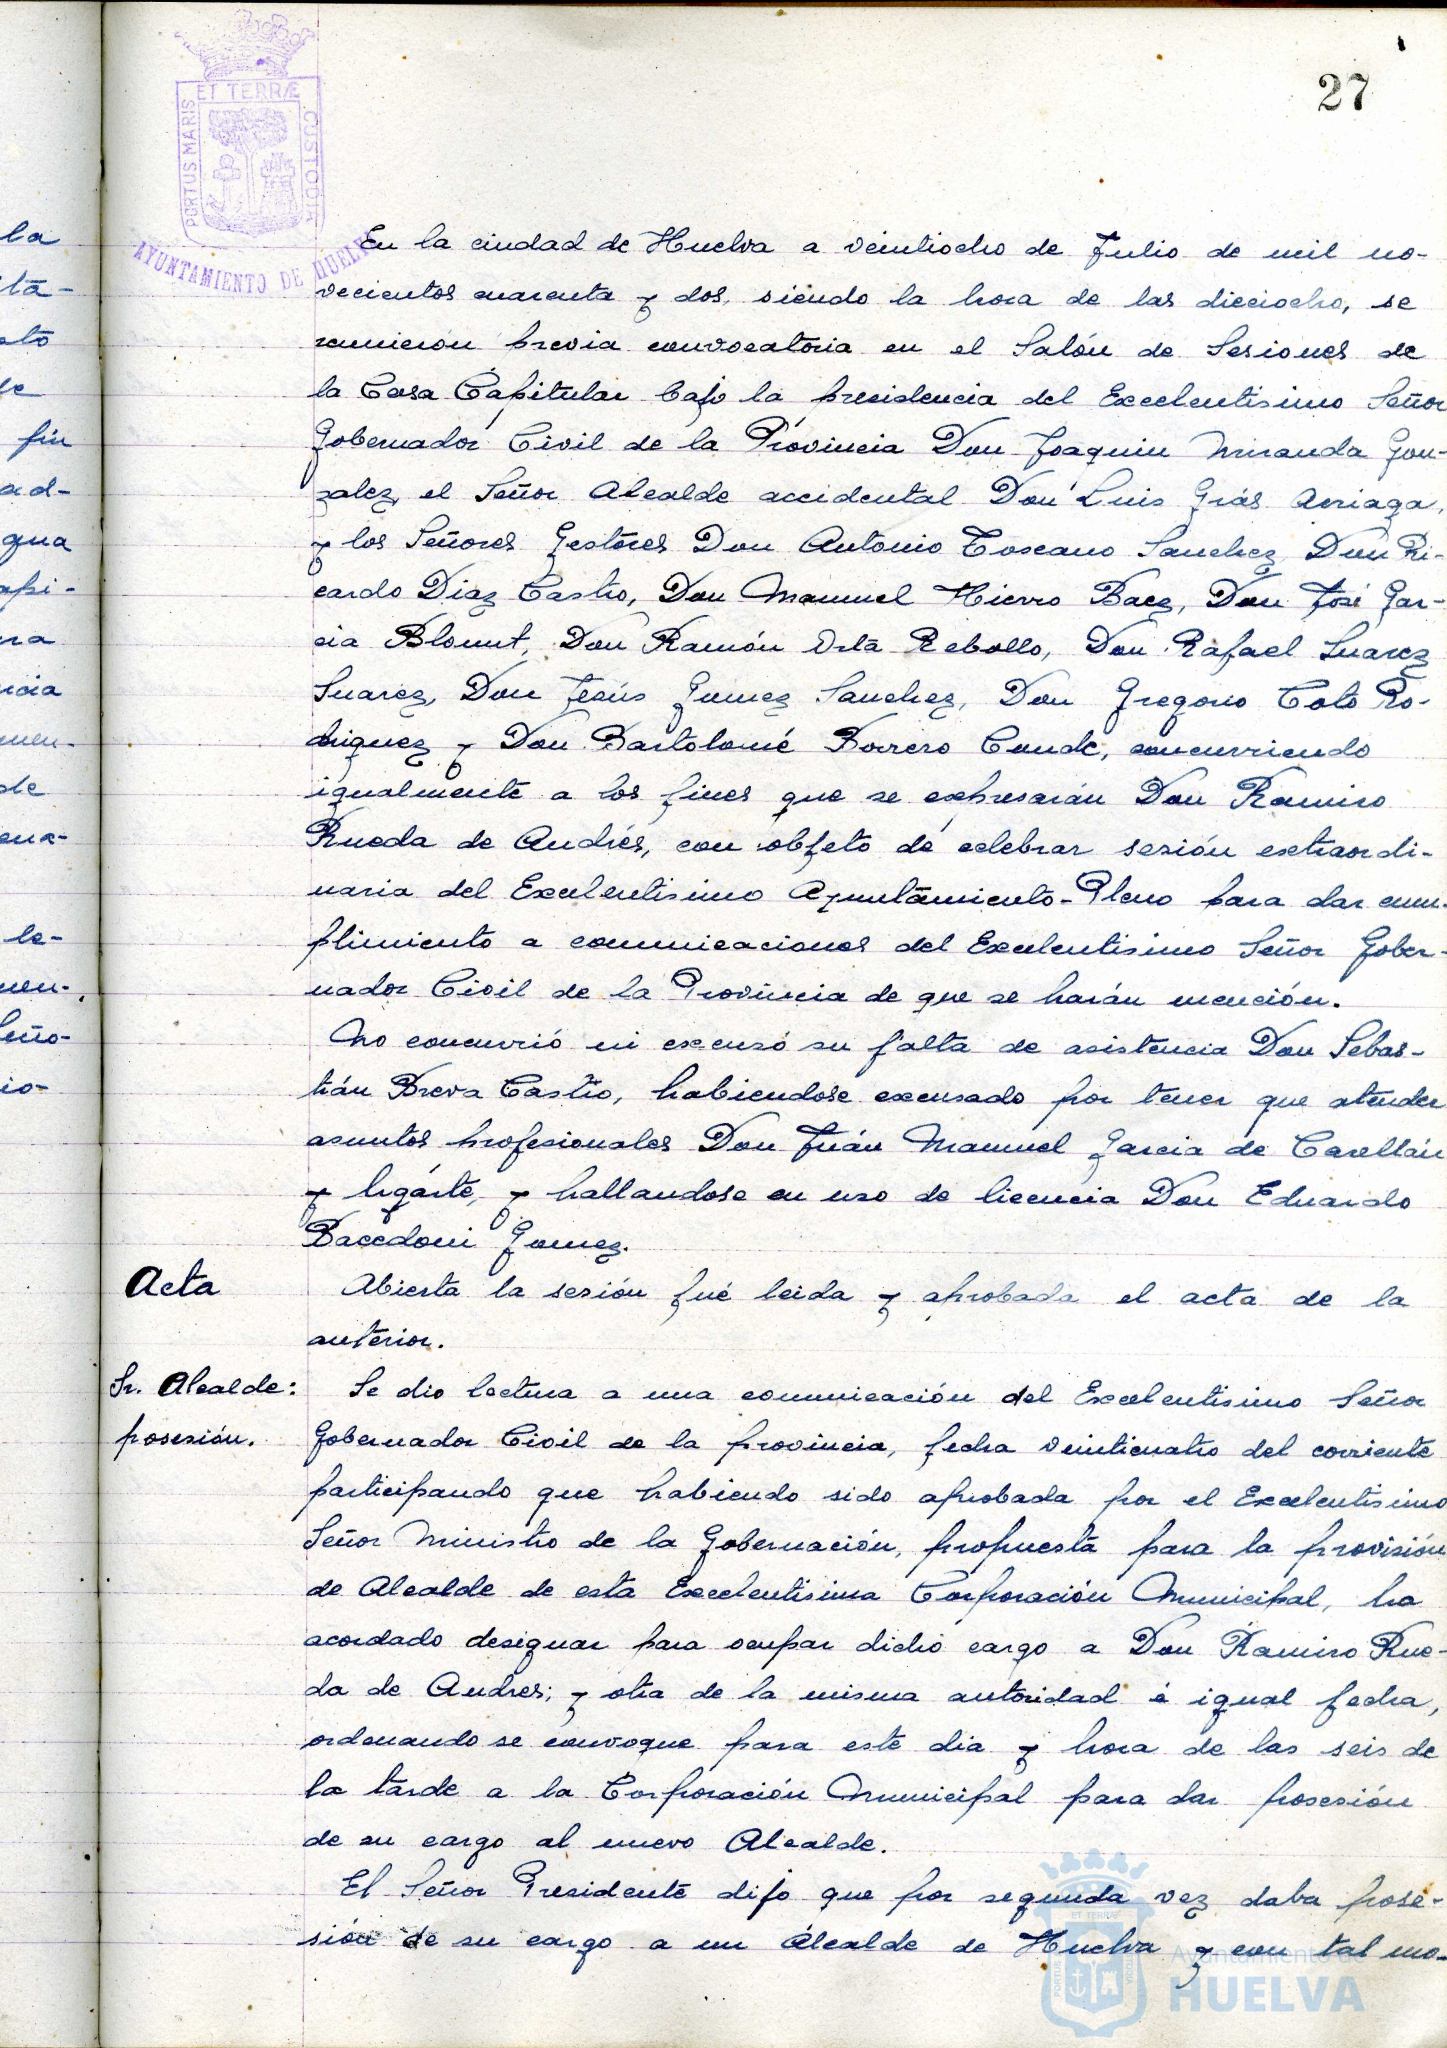 27
PORTUS MARIS
ET TERRÆ
CUSTODIA
AYUNTAMIENTO DE HUELVA
la
sto
de
fin
ad-
gua
api-
ra
ncia
men-
de
le-
men-
Seño-
io-
En la ciudad de Huelva a veintiocho de Julio de mil no-
vecientos cuarenta y dos, siendo la hora de las dieciocho, se
reunieron previa convocatoria en el Salón de Sesiones de
la Casa Capitular bajo la presidencia del Excelentisimo Señor
Gobernador Civil de la Provincia Don Joaquin Miranda Gon-
zalez, el Señor Alcalde accidental Don Luis Grás Arriaga,
y los Señores Gestores Don Antonio Toscano Sanchez, Don Ri-
cardo Diaz Castro, Don Manuel Hierro Baez, Don José Gar-
cia Blomut, Don Ramón Orta Rebollo, Don Rafael Suarez
Suarez, Don Jesús Gomez Sanchez, Don Gregorio Coto Ro-
driguez y Don Bartolomé Borrero Conde, concurriendo
igualmente a los fines que se expresarán Don Ramiro
Rueda de Andrés, con objeto de celebrar sesión extraordi-
naria del Excelentisimo Ayuntamiento-Pleno para dar cum-
plimiento a comunicaciones del Excelentisimo Señor Gober-
nador Civil de la Provincia de que se harán mención.
No concurrió ni excusó su falta de asistencia Don Sebas-
tián Breva Castro, habiendose excusado por tener que atender
asuntos profesionales Don Juán Manuel Garcia de Casellán
y Ugarte, y hallandose en uso de licencia Don Eduardo
Bacedoni Gomez.
Acta
Abierta la sesión fué leida y aprobada el acta de la
anterior.
Sr. Alcalde:
posesión.
Se dio lectura a una comunicación del Excelentisimo Señor
Gobernador Civil de la provincia, fecha veinticuatro del corriente
participando que habiendo sido aprobada por el Excelentisimo
Señor Ministro de la Gobernación, propuesta para la provisión
de Alcalde de esta Excelentisima Corporación Municipal, ha
acordado designar para ocupar dicho cargo a Don Ramiro Rue-
da de Andres; y otra de la misma autoridad é igual fecha,
ordenando se convoque para este dia y hora de las seis de
la tarde a la Corporación Municipal para dar posesión
de su cargo al nuevo Alcalde.
El Señor Presidente dijo que por segunda vez daba pose-
sión de su cargo a un Alcalde de Huelva y con tal mo-
Ayuntamiento de
HUELVA